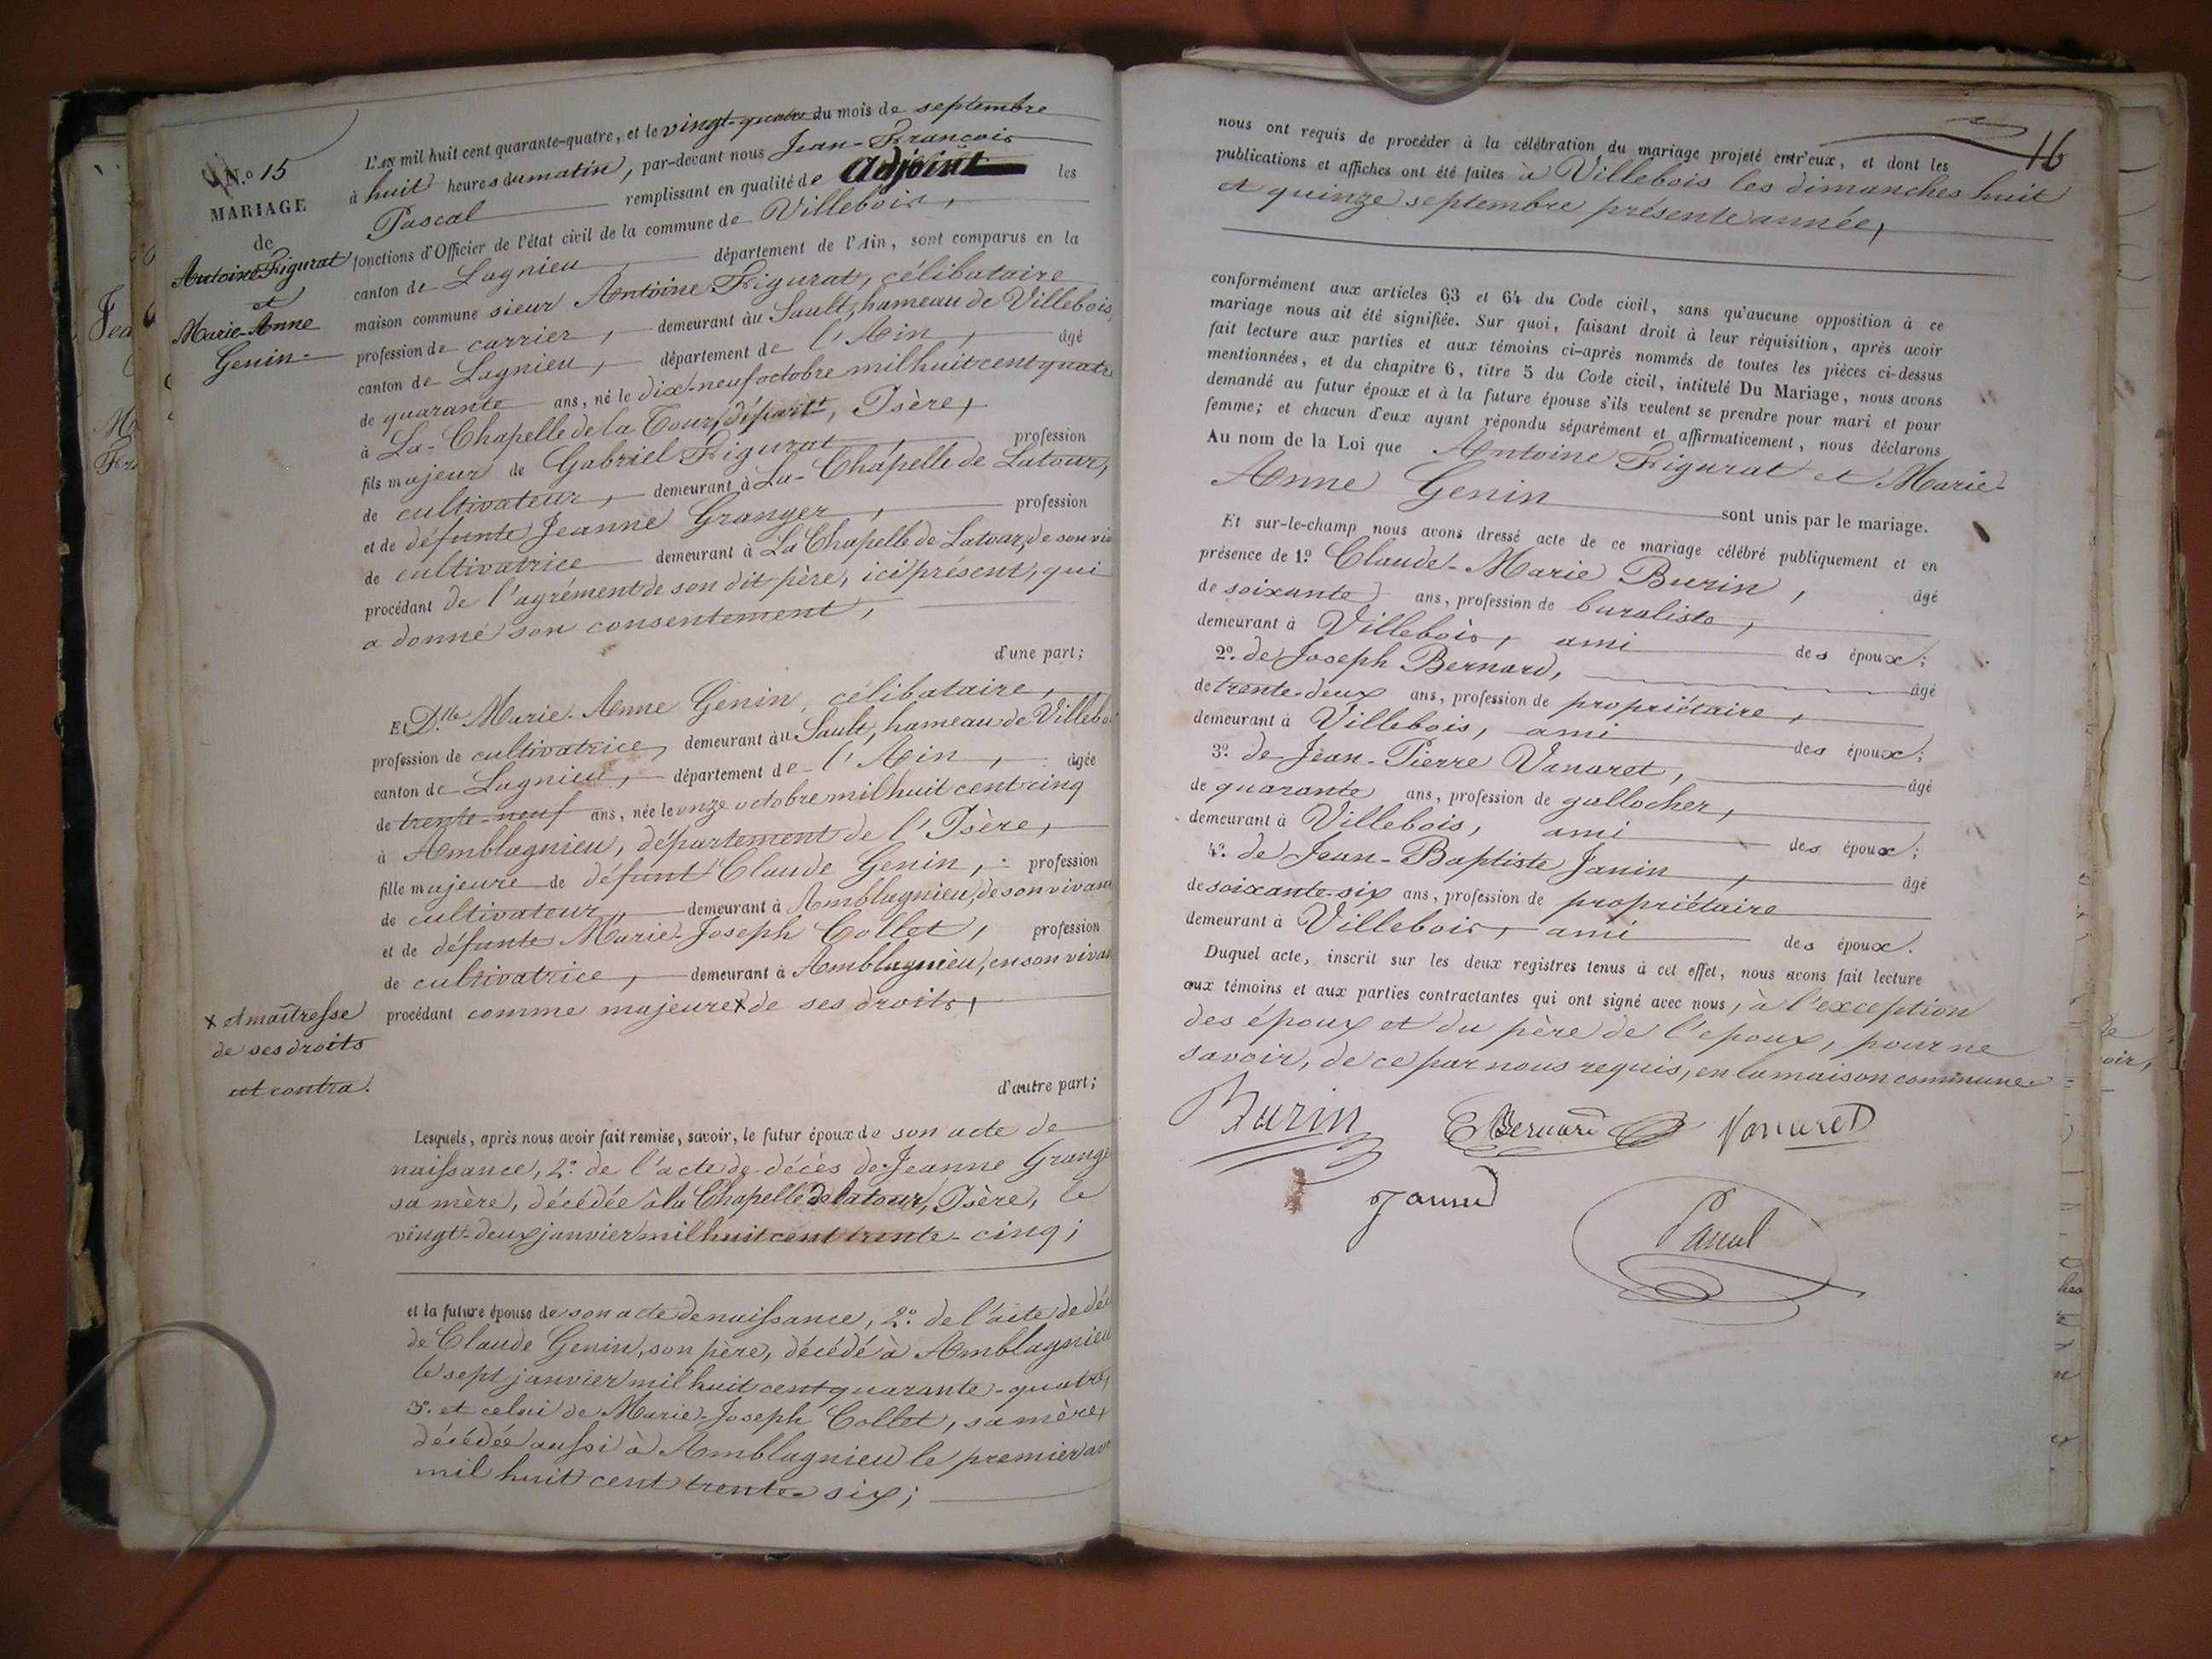 N.o 15
MARIAGE
de
Antoine Figurat
et
Marie-Anne
Genin
L'AN mil huit cent quarante-quatre, et le vingt-quatre du mois de septembre
à huit heures du matin, par-devant nous Jean-François
Pascal remplissant en qualité de adjoint les
fonctions d'Officier de l'état civil de la commune de Villebois,
canton de Lagnieu département de l'Ain, sont comparus en la
maison commune sieur Antoine Figurat, célibataire
profession de carrier, demeurant àu Sault, hameau de Villebois,
canton de Lagnieu, département de l'Ain, âgé
de quarante ans, né le dix-neuf octobre mil huit cent quatre
à La-Chapelle de la Tour, départt, Isère,
fils majeur de Gabriel Figurat, profession
de cultivateur, demeurant à La-Chapelle de Latour,
et de défunte Jeanne Granger, profession
de cultivatrice demeurant à La Chapelle de Latour, de son viv
procédant de l'agrément de son dit père, ici présent, qui
a donné son consentement,
d'une part;
Et D.lle Marie-Anne Genin, célibataire,
profession de cultivatrice, demeurant àu Sault, hameau de Villeboi
canton de Lagnieu, département de l'Ain, âgée
de trente-neuf ans, née le onze octobre mil huit cent cinq
à Amblagnieu, département de l'Isère,
fille majeure de défunt Claude Genin, profession
de cultivateur demeurant à Amblagnieu, de son vivant
et de défunte Marie-Joseph Collet, profession
de cultivatrice, demeurant à Amblagnieu, en son vivan
procédant comme majeure x de ses droits,
x et maîtresse
de ses droits
d'autre part;
Lesquels, après nous avoir fait remise, savoir, le futur époux de son acte de
naissance, 2.° de l'acte de décès de Jeanne Grange
sa mère, décédée à la Chapelle de latour, Isère, le
vingt-deux janvier mil huit cent trente-cinq;
et la future épouse de son acte de naissance, 2.° de l'acte de déc
de Claude Genin, son père, décédé à Amblagnieu
le sept janvier mil huit cent quarante-quatre,
3.° et celui de Marie-Joseph Collet, sa mère,
décédée aussi à Amblagnieu le premier
mil huit cent trente-six;
16
nous ont requis de procéder à la célébration du mariage projeté entr'eux, et dont les
publications et affiches ont été faites à Villebois les dimanches huit
et quinze septembre présente année,
conformément aux articles 63 et 64 du Code civil, sans qu'aucune opposition à ce
mariage nous ait été signifiée. Sur quoi, faisant droit à leur réquisition, après avoir
fait lecture aux parties et aux témoins ci-après nommés de toutes les pièces ci-dessus
mentionnées, et du chapitre 6, titre 5 du Code civil, intitulé Du Mariage, nous avons
demandé au futur époux et à la future épouse s'ils veulent se prendre pour mari et pour
femme; et chacun d'eux ayant répondu séparément et affirmativement, nous déclarons
Au nom de la Loi que Antoine Figurat et Marie-
Anne Genin sont unis par le mariage.
Et sur-le-champ nous avons dressé acte de ce mariage célébré publiquement et en
présence de 1.° Claude-Marie Burin, âgé
de soixante ans, profession de buraliste,
demeurant à Villebois, ami des époux;
2.° de Joseph Bernard, âgé
de trente-deux ans, profession de propriétaire,
demeurant à Villebois, ami des époux;
3.° de Jean-Pierre Vanaret, âgé
de quarante ans, profession de gallocher,
demeurant à Villebois, ami des époux;
4.° de Jean-Baptiste Janin, âgé
de soixante-six ans, profession de propriétaire
demeurant à Villebois, ami des époux.
Duquel acte, inscrit sur les deux registres tenus à cet effet, nous avons fait lecture
aux témoins et aux parties contractantes qui ont signé avec nous, à l'exception
des époux et du père de l'époux, pour ne
savoir, de ce par nous requis, en la maison commune
Burin Bernard Vanaret
Janin
Pascal